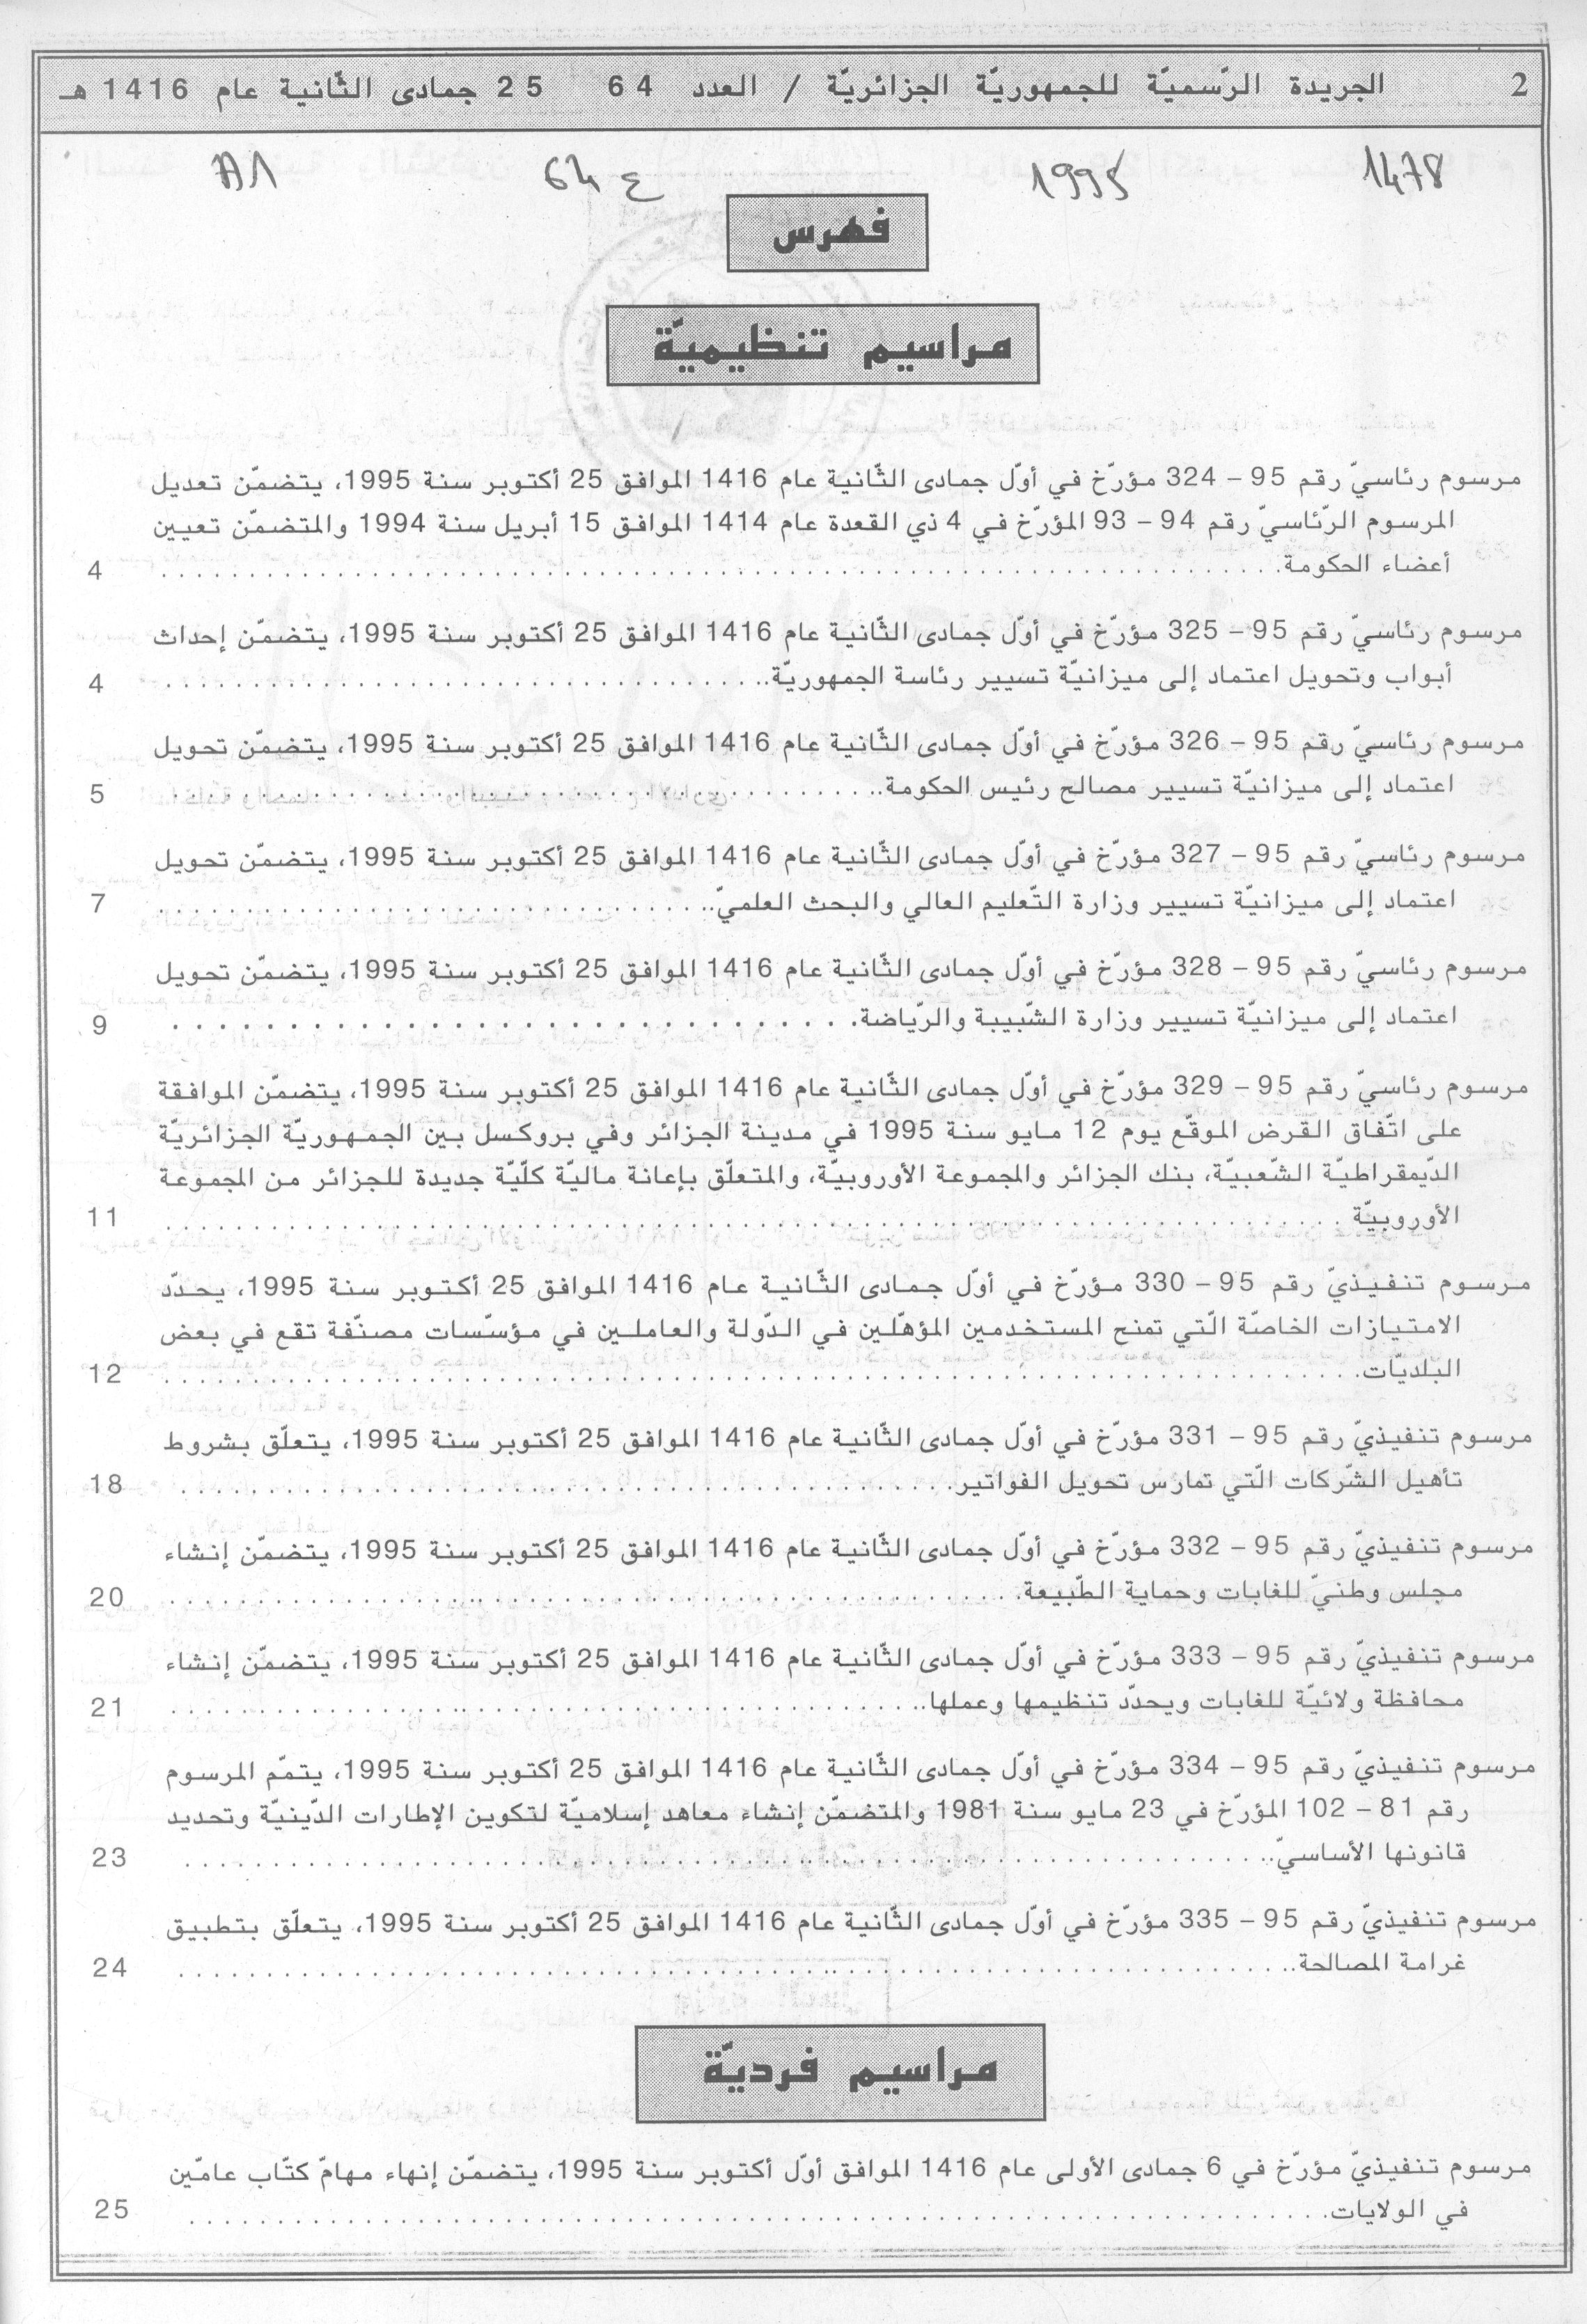 2 الجريدة الرّسميّة للجمهوريّة الجزائريّة / العدد 64 25 جمادى الثّانية عام 1416 هـ
1478 1995 ع 64
فهرس
مراسيم تنظيميّة
مرسوم رئاسيّ رقم 95 – 324 مؤرّخ في أوّل جمادى الثّانية عام 1416 الموافق 25 أكتوبر سنة 1995، يتضمّن تعديل
المرسوم الرّئاسيّ رقم 94 – 93 المؤرّخ في 4 ذي القعدة عام 1414 الموافق 15 أبريل سنة 1994 والمتضمّن تعيين
أعضاء الحكومة. 4
مرسوم رئاسيّ رقم 95 – 325 مؤرّخ في أوّل جمادى الثّانية عام 1416 الموافق 25 أكتوبر سنة 1995، يتضمّن إحداث
أبواب وتحويل اعتماد إلى ميزانيّة تسيير رئاسة الجمهوريّة. 4
مرسوم رئاسيّ رقم 95 – 326 مؤرّخ في أوّل جمادى الثّانية عام 1416 الموافق 25 أكتوبر سنة 1995، يتضمّن تحويل
اعتماد إلى ميزانيّة تسيير مصالح رئيس الحكومة. 5
مرسوم رئاسيّ رقم 95 – 327 مؤرّخ في أوّل جمادى الثّانية عام 1416 الموافق 25 أكتوبر سنة 1995، يتضمّن تحويل
اعتماد إلى ميزانيّة تسيير وزارة التّعليم العالي والبحث العلميّ. 7
مرسوم رئاسيّ رقم 95 – 328 مؤرّخ في أوّل جمادى الثّانية عام 1416 الموافق 25 أكتوبر سنة 1995، يتضمّن تحويل
اعتماد إلى ميزانيّة تسيير وزارة الشّبيبة والرّياضة. 9
مرسوم رئاسيّ رقم 95 – 329 مؤرّخ في أوّل جمادى الثّانية عام 1416 الموافق 25 أكتوبر سنة 1995، يتضمّن الموافقة
على اتّفاق القرض الموقّع يوم 12 مايو سنة 1995 في مدينة الجزائر وفي بروكسل بين الجمهوريّة الجزائريّة
الدّيمقراطيّة الشّعبيّة، بنك الجزائر والمجموعة الأوروبيّة، والمتعلّق بإعانة ماليّة كلّيّة جديدة للجزائر من المجموعة
الأوروبيّة 11
مرسوم تنفيذيّ رقم 95 – 330 مؤرّخ في أوّل جمادى الثّانية عام 1416 الموافق 25 أكتوبر سنة 1995، يحدّد
الامتيازات الخاصّة الّتي تمنح المستخدمين المؤهّلين في الدّولة والعاملين في مؤسّسات مصنّفة تقع في بعض
البلديّات. 12
مرسوم تنفيذيّ رقم 95 – 331 مؤرّخ في أوّل جمادى الثّانية عام 1416 الموافق 25 أكتوبر سنة 1995، يتعلّق بشروط
تأهيل الشّركات الّتي تمارس تحويل الفواتير. 18
مرسوم تنفيذيّ رقم 95 – 332 مؤرّخ في أوّل جمادى الثّانية عام 1416 الموافق 25 أكتوبر سنة 1995، يتضمّن إنشاء
مجلس وطنيّ للغابات وحماية الطّبيعة. 20
مرسوم تنفيذيّ رقم 95 – 333 مؤرّخ في أوّل جمادى الثّانية عام 1416 الموافق 25 أكتوبر سنة 1995، يتضمّن إنشاء
محافظة ولائيّة للغابات ويحدّد تنظيمها وعملها. 21
مرسوم تنفيذيّ رقم 95 – 334 مؤرّخ في أوّل جمادى الثّانية عام 1416 الموافق 25 أكتوبر سنة 1995، يتمّم المرسوم
رقم 81 – 102 المؤرّخ في 23 مايو سنة 1981 والمتضمّن إنشاء معاهد إسلاميّة لتكوين الإطارات الدّينيّة وتحديد
قانونها الأساسيّ. 23
مرسوم تنفيذيّ رقم 95 – 335 مؤرّخ في أوّل جمادى الثّانية عام 1416 الموافق 25 أكتوبر سنة 1995، يتعلّق بتطبيق
غرامة المصالحة. 24
مراسيم فرديّة
مرسوم تنفيذيّ مؤرّخ في 6 جمادى الأولى عام 1416 الموافق أوّل أكتوبر سنة 1995، يتضمّن إنهاء مهامّ كتّاب عامّين
في الولايات. 25